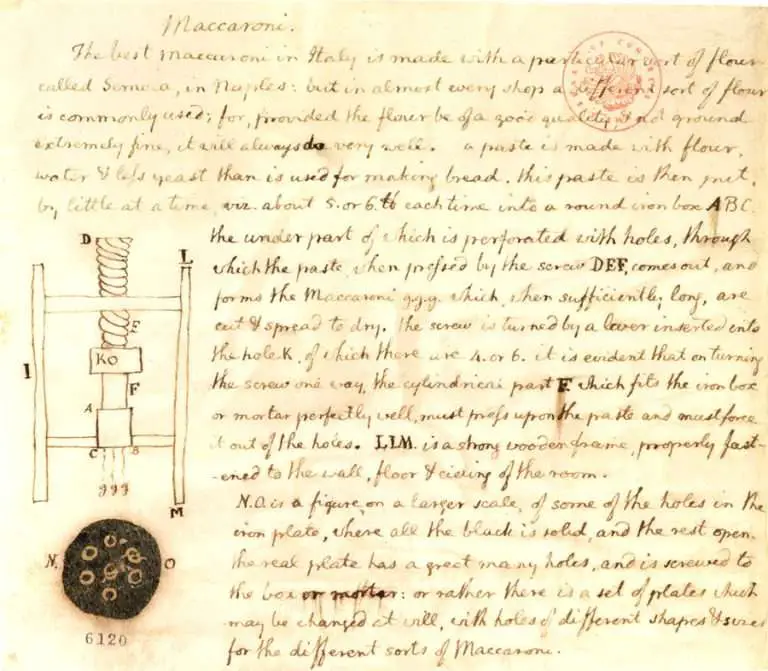 Maccaroni.
The best maccaroni in Italy is made with a particular sort of flour
called Semola, in Naples: but in almost every shop a different sort of flour
is commonly used; for, provided the flour be of a good quality, & not ground
extremely fine, it will always do very well. a paste is made with flour,
water & less yeast than is used for making bread. this paste is then put,
by little at a time, viz. about 5. or 6. ℔ each time into a round iron box ABC.
the under part of which is perforated with holes, through
which the paste, when pressed by the screw DEF, comes out, and
forms the Maccaroni g.g.g. which, when sufficiently long, are
cut & spread to dry. the screw is turned by a lever inserted into
the hole K, of which there are 4. or 6. it is evident that on turning
the screw one way, the cylindrical part F. which fits the iron box
or mortar perfectly well, must press upon the paste and must force
it out of the holes. LLM. is a strong wooden frame, properly fast-
-ened to the wall, floor & cieling of the room.
N.O. is a figure, on a larger scale, of some of the holes in the
iron plate, where all the black is solid, and the rest open.
the real plate has a great many holes, and is screwed to
the box or mortar: or rather there is a set of plates which
may be changed at will, with holes of different shapes & sizes
for the different sorts of Maccaroni.
D
L
E
I
KO
F
A
C B
ggg
M
N. O
6120